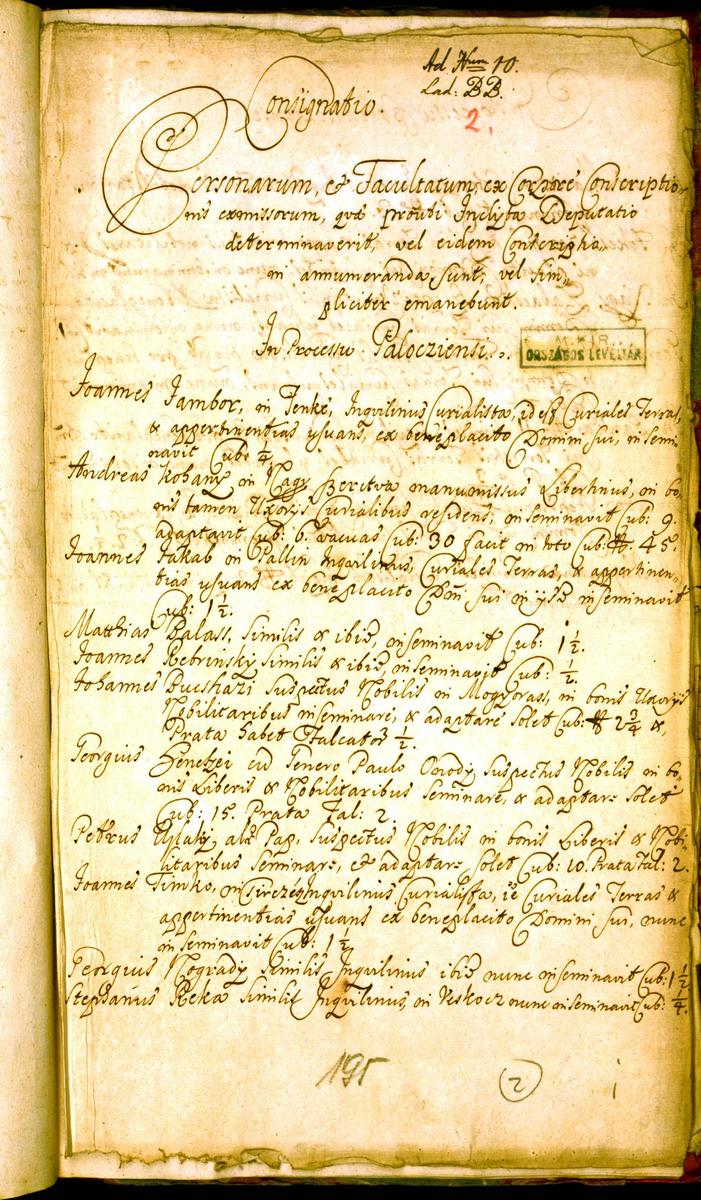 Ad Num 10.
Lad: BB.
2.
Consignatio.
Personarum, et Facultatum, ex Corpore Conscriptio„
nis exmissorum, quæ prouti Inclyta Deputatio
determinaverit, vel eidem Conscriptio„
ni annumeranda sunt, vel sim„
pliciter emanebunt.
In Processu Palocziensi.
M. KIR.
ORSZÁGOS LEVÉLTÁR
Joannes Jambor, in Tenke, Inquilinus Curialista, id est Curiales Terras,
& appertinentias usuans, ex beneplacito Domini sui, insemi„
navit Cub: 1/4.
Andreas Kohany in Nagy Szeretva manumissus Libertinus, in bo„
nis tamen Uxoris Curialibus residens, inseminavit Cub: 9.
adaptavit Cub: 6. vacuas Cub: 30 facit in toto Cub: 45.
Joannes Jakab in Pallin Inquilinus, Curiales Terras, & appertinen„
tias usuans ex beneplacito Dni sui in ijsd inseminavit
Cub: 1 1/2.
Matthias Balass, Similis & ibid, inseminavit Cub: 1 1/2.
Joannes Rebrinsky Similis & ibid, inseminavit Cub: 1/2.
Johannes Bucshazi Suspectus Nobilis in Mogyorass, in bonis Uxoris
Nobilitaribus inseminare, & adaptare solet Cub: 2 3/4 &
Prata habet Falcator 1/2.
Georgius Henczei cu Genero Paulo Orody Suspectus Nobilis in bo„
nis Liberis & Nobilitaribus Seminare, & adaptare solet
Cub: 15. Prata Fal: 2.
Petrus Ujlaky als Pap, Suspectus Nobilis in bonis Liberis & Nobi„
litaribus Seminare, & adaptare solet Cub: 10. Prata Fal: 2.
Joannes Timko, in Inquilinus Curialista, ie Curiales Terras &
appertinentias usuans ex beneplacito Domini sui, nunc
inseminavit Cub: 1 1/2
Georgius Nogrady Similis Inquilinus ibid nunc inseminavit Cub: 1 1/2
Stephanus Reka Similis Inquilinus, in Veskocz nunc inseminavit Cub: 1/4.
195
2